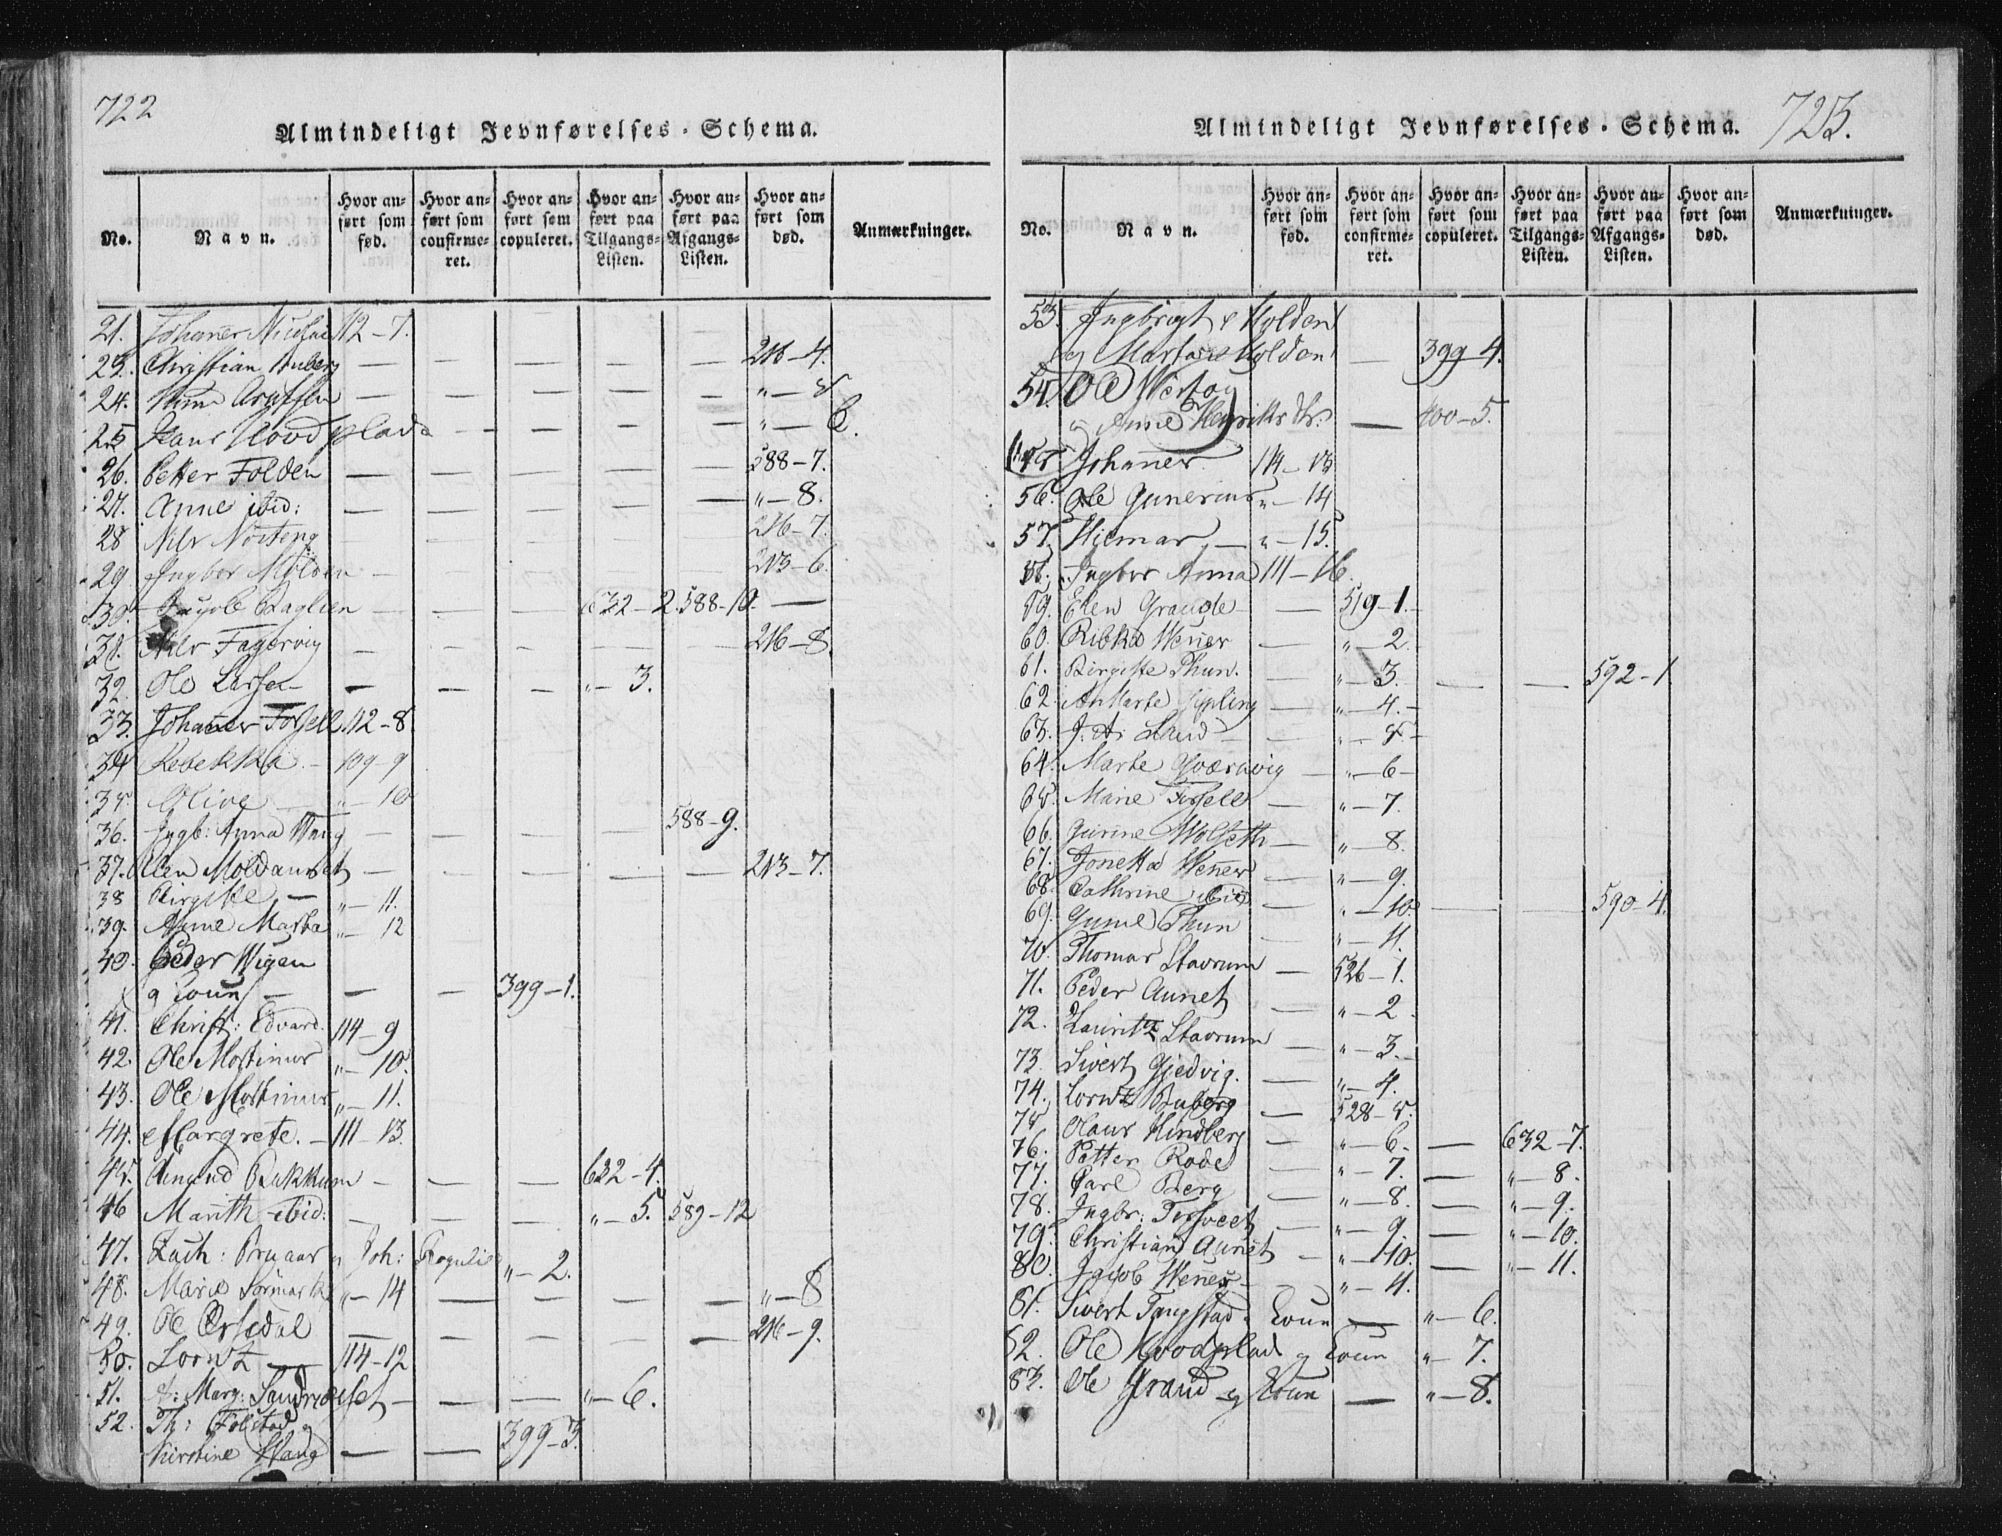 722
Almindeligt Jevnførelses-Schema.
No. Navn. Hvor anført som fød. Hvor anført som confirmeret. Hvor anført som copuleret. Hvor anført paa Tilgangs-Listen. Hvor anført paa Afgangs-Listen. Hvor anført som død. Anmærkninger.
21. Johanes 112-7.
23. Christian — — — — — 216-4.
24. — — — — — " — 5
25 Hans Hovdplads — — — — — " — 6.
26. Petter Folden — — — — — 588-7.
27. Anne ibid: — — — — — " — 8.
28 Nils 216-7.
29 Ingbor Molden — 213-6.
30. — — — 632-2. 588-10. —
31. Nils Fagervig — — — — — 216-8.
32. Ole — — — " — 3.
33. Johanes Forsell 112-8.
34 Rebekka — 109-9
35. Olive — " — 10
36. Ingb: Anna Wang — — — — 588-9.
37. Elen Moldaunet — — — — — 213-7.
38 Birgitte — " — 11.
39. Anne Marta " — 12
40. Peder Wigen
og Koun — — — 399-1.
41. Christ: Edvard. 114-9
42. Ole Mortinus " — 10.
43. Ole Mortinus " — 11.
44. Margrete. — 111-13.
45. Amund Bakkum — — — 632-4.
46 Marith ibid: — — — " — 5. 589-12
47. Zach: og Joh: " — 2.
48. Marie " — 14 — — — — " — 8
49. Ole — — — — — 216-9.
50. Lorntz — 114-12
51. A: Marg: — — — " — 6.
52. Th: Folstad og
Kirstine Wang — — 399-3.
723.
Almindeligt Jevnførelses-Schema.
No. Navn. Hvor anført som fød. Hvor anført som confirmeret. Hvor anført som copuleret. Hvor anført paa Tilgangs-Listen. Hvor anført paa Afgangs-Listen. Hvor anført som død. Anmærkninger.
53. Ingbrigt Holden
og Marta Holden — 399-4.
54. Ole
og Anne Henriksdr: — 400-5.
55 Johanes. 114-13
56. Ole Gunerius " — 14
57. Hiemar — " — 15.
58. Ingbor Anna 111-16.
59. Elen Grande — 519-1.
60. Ribka Wenes — " — 2
61. Birgitte Thun. " — 3. — — 592-1
62 AnMarte — " — 4.
63. J: A: — " — 5
64. Marte — " — 6
65. Marie Forsell — " — 7.
66. Gurine Wolseth — " — 8.
67. Jonetta Wenes — " — 9.
68. Cathrine ibid — " — 10. — — 590-4.
69. Gunild Thun — " — 11.
70. Thomas Stavrum — 526-1.
71. Peder Aunet — " — 2
72. Lauritz Stavrum — " — 3.
73. Sivert Gjedvig. — " — 4.
74. Lorntz Buberg — 528-5.
75 Olaus Hindberg — " — 6. — 632-7.
76. Petter Rode — " — 7. — " — 8.
77. Carl Berg — " — 8. — " — 9.
78. Ingbr: — " — 9. — " — 10.
79. Christian Aunet — " — 10. — " — 11.
80. Jacob Wenes — " — 11.
81. Sivert Tangstad og Koun — " — 6.
82. Ole Hovdplad og Koun " — 7.
83. Ole Grand og Koun — " — 8.